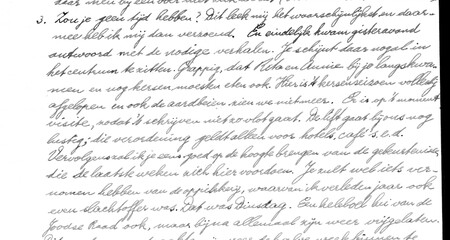 3. Zou je geen tijd hebben? Dit leek mij het waarschijnlijkst en daar-
mee heb ik mij dan verzoend. En eindelijk kwam gisteravond
antwoord met de nodige verhalen. Je schijnt daar nogal in
het centrum te zitten. Grappig, dat Reta en Annie bij je langs kwa-
men en nog kersen moesten eten ook. Hier is 't kersenseizoen volledig
afgelopen en ook de aardbeien zien we niet meer. Er is op 't moment
visite, zodat 't schrijven niet zo vlot gaat. Delft gaat bij ons nog
lustig; die verordening geldt alleen voor hotels, café's e.d.
Vervolgens zal ik je eens goed op de hoogte brengen van de gebeurtenissen
die de laatste weken zich hier voordoen. Je zult wel iets ver-
nomen hebben van de oppikkerij, waarvan ik verleden jaar ook
even slachtoffer was. Dat was Dinsdag. Een heleboel lui van de
Joodse Raad ook, maar bijna allemaal zijn weer vrijgelaten.